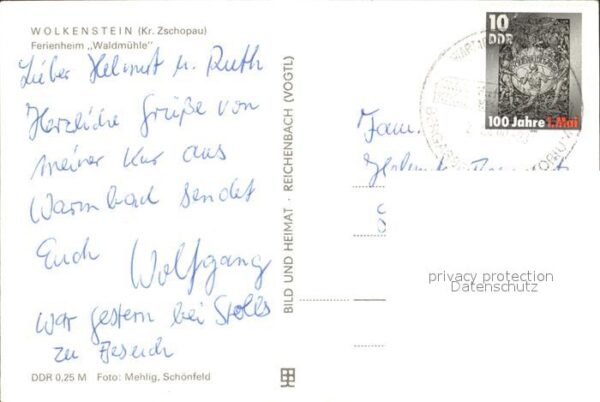 WOLKENSTEIN (Kr. Zschopau)
Ferienheim „Waldmühle"
Lieber Helmut u. Ruth
Herzliche Grüße von
meiner Kur aus
Warmbad sendet
Euch Wolfgang
war gestern bei Stolls
zu Besuch
DDR 0,25 M Foto: Mehlig, Schönfeld
BILD UND HEIMAT · REICHENBACH (VOGTL)
10
DDR
100 Jahre 1. Mai
Fam.
privacy protection
Datenschutz